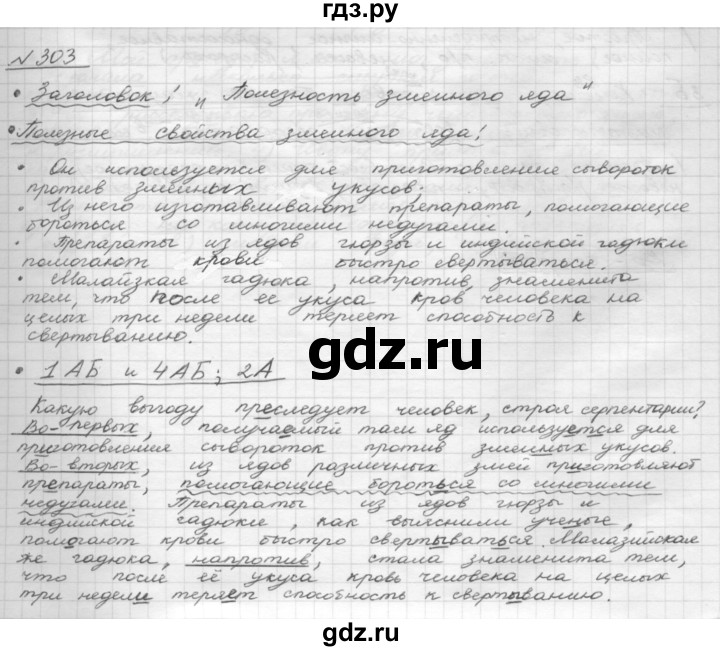 гдз.ру
№ 303
• Заголовок! „Полезность змеиного яда"
• Полезные свойства змеиного яда!
• Он используется для приготовление сывороток
против змеиных укусов;
• Из него изготавливают препараты, помогающие
бороться со многими недугами.
• Препараты из ядов гюрзы и индийской гадюки
помогают крови быстро свертываться.
• Малайзкая гадюка, напротив, знаменита
тем, что после ее укуса кров человека на
целых три недели теряет способность к
свертыванию.
gdz.ru
• 1АБ и 4АБ; 2А
Какую выгоду преследует человек, строя серпентарии?
Во-первых, получаемый там яд используется для
приготовления сывороток против змеиных укусов.
Во-вторых, из ядов различных змей приготовляют
препараты, помогающие бороться со многими
недугами. Препараты из ядов гюрзы и
индийской гадюки, как выяснили ученые,
помогают крови быстро свертываться. Малазийская
же гадюка, напротив, стала знаменита тем,
что после её укуса кровь человека на целых
три недели теряет способность к свертыванию.
gdz.ru